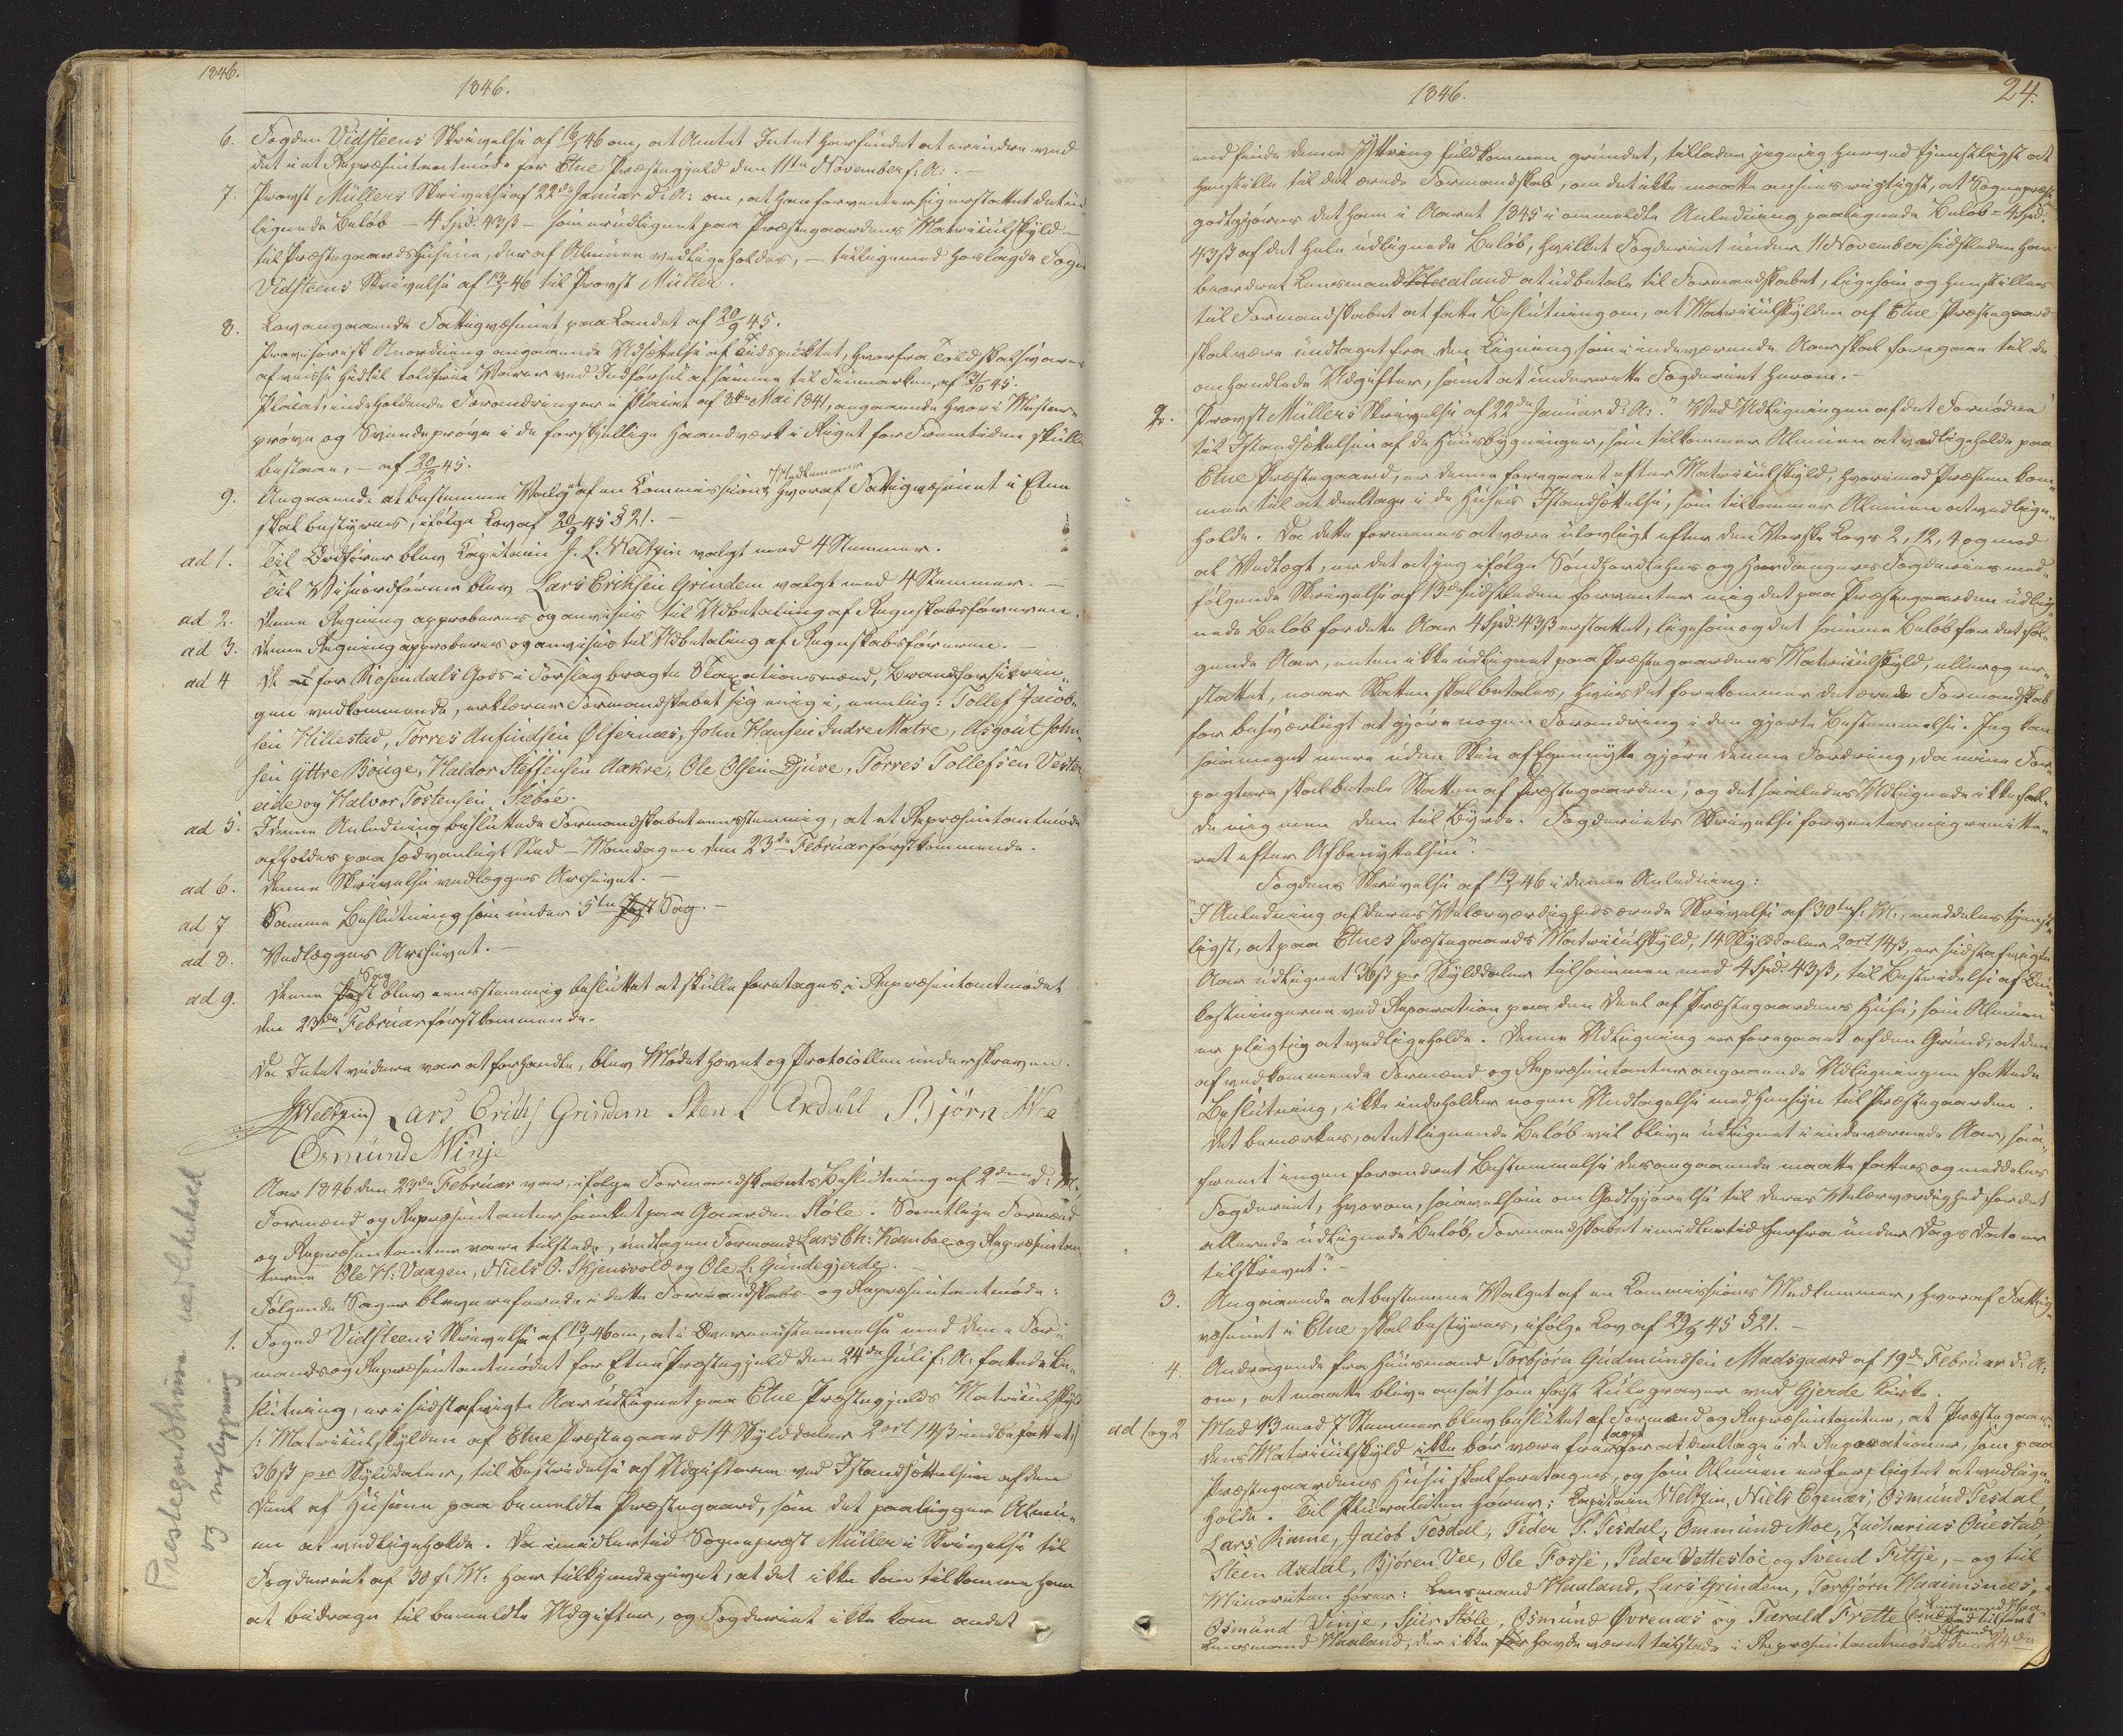 1846.
1846.
6. Fogden Vidsteens Skrivelse af 16/1 46 om, at Amtet Intet har fundet at erindre ved
det i et Repræsentantmøde for Etne Præstegjeld den 11te November f: A: . —
7. Provst Müllers Skrivelse af 22de Januar d: A: om, at han forventer sig erstattet det ud-
lignede Beløb — 4 Spd. 43ß — som er udlignet paa Præstegaardens Matriculskyld —
til Præstegaardshusene, der af Almuen vedligeholdes, — tilligemed herlagde Foged
Vidsteens Skrivelse af 13/1 46 til Provst Müller.
8. Lov angaaende Fattigvæsenet paa Landet af 20/9 45.
Provisorisk Anordning angaaende Udsættelse af Tidspunktet, hvorfra Told skal svares
af visse hidtil toldfrie Varer ved Indførsel af samme til Finmarken, af 31/10 45.
Placat, indeholdende Forandringer i Placat af 8de Mai 1841, angaaende hvori Mester-
prøve og Svendeprøve i de forskjellige Haandværk i Riget for Fremtiden skulle
bestaae, — af 20/12 45.
9. Angaaende at bestemme Valget af en Commissions Medlemmer hvoraf Fattigvæsenet i Etne
skal bestyres, ifølge Lov af 20/9 45 § 21. —
ad 1. Til Ordfører blev Capitain J. L. Weltzin valgt med 4 Stemmer.
Til Viceordfører blev Lars Eriksen Grindem valgt med 4 Stemmer. —
ad 2. Denne Regning approberes og anvises til Udbetaling af Regnskabsføreren.
ad 3. Denne Regning approberes og anvises til Udbetaling af Regnskabsføreren. —
ad 4 De for Rosendals Gods i Forslag bragte 8 Taxationsmænd, Brandforsikrin-
gen vedkommende, erklærer Formandskabet sig enig i, nemlig: Tollef Jacob-
sen Hillestad, Torres Aufindsen Ølfernæs, John Hansen Indre Matre, Asgout John-
sen Yttre Bouge, Haldor Steffensen Aakre, Ole Olsen Djuve, Torres Tollefsen Vester
eide og Halvor Tostensen Sæbøe.
ad 5. I denne Anledning besluttede Formandskabet eenstemmig, at et Repræsentantmøde
afholdes paa sædvanligt Sted — Mandagen den 23de Februar førstkommende.
ad 6. Denne Skrivelse vedlægges Archivet. —
ad 7 Samme Beslutning som under 5te Post Sag. —
ad 8. Vedlægges Archivet. —
ad 9. Denne Post Sag blev eenstemmig besluttet at skulle foretages i Repræsentantmødet
den 23de Februar førstkommende.
Da Intet videre var at forhandle, blev Mødet hævet og Protocollen underskreven.
JWeltzin Lars Erichs Grindem Sten L Axdahl Bjørn Wee
Osmund Winje
Aar 1846 den 23de Februar var, ifølge Formandskabets Beslutning af 2den d: M:,
Formænd og Repræsentanter samlet paa Gaarden Støle. Samtlige Formænd
og Repræsentanter vare tilstede, undtagen Formand Lars Ch: Kamboe og Repræsentan
terne Ole H: Vaagen, Niels O. Skjensvold og Ole L. Gundegjerde.
Følgende Sager bleve refererede i dette Formandskabs- og Repræsentantmøde:
1. Foged Vidsteens Skrivelse af 13/1 46 om, at i Overeensstemmelse med den i For-
mands og Repræsentantmødet for Etne Præstegjeld den 24de Juli f: A: fattede Be-
slutning, er i sidstafvigte Aar udlignet paa Etne Præstegjelds Matriculskyld
/: Matriculskylden af Etne Præstegaard 14 Skylddaler 2 ort 14ß indbefattet :/
36ß per Skylddaler, til Bestridelse af Udgifterne ved Istandsættelsen af den
Deel af Husene paa bemeldte Præstegaard, som det paaligger Almu-
en at vedligeholde. Da imidlertid Sognepræst Müller i Skrivelse til
Fogderiet af 30 f: M: har tilkjendegivet, at det ikke kan tilkomme ham
at bidrage til bemeldte Udgifter, og Fogderiet ikke kan andet
Prestegardshusa vedlikehald
og nylegging
1846.
24.
end finde denne Yttring fuldkommen grundet, tillader jeg mig herved tjenstligst at
henstille til det ærede Formandskab, om det ikke maatte ansees rigtigst, at Sognepræsten
godtgjøres det ham i Aaret 1845 i ommeldte Anledning paalignede Beløb = 4 Spd.
43ß af det hele udlignede Beløb, hvilket Fogderiet under 11 November sidstleden har
beordret Lensmand Haaland at udbetale til Formandskabet, ligesom og henstilles
til Formandskabet at fatte Beslutning om, at Matriculskylden af Etne Præstegaard
skal være undtaget fra den Ligning som i indeværende Aar skal foregaae til de
omhandlede Udgifter, samt at underrette Fogderiet herom. —
2. Provst Müllers Skrivelse af 22de Januar d: A: "Ved Udligningen af det Fornødne
til Istandsættelsen af de Huusbygninger, som tilkommer Almuen at vedligeholde paa
Etne Præstegaard, er denne foregaaet efter Matriculskyld, hvorimod Præsterne kom-
mer til at deeltage i de Husers Istandsættelse, som tilkommer Almuen at vedlige-
holde. Da dette formenes at være ulovligt efter den Norske Lovs 2, 12, 4 og mod
al Vedtægt, er det at jeg ifølge Søndhordlehns og Hardangers Fogderies med-
følgende Skrivelse af 13de sidstleden forventer mig det paa Præstegaarden udlig-
nede Beløb for dette Aar 4 Spd 43ß erstattet, ligesom og det samme Beløb for det føl-
gende Aar, enten ikke udlignet paa Præstegaardens Matriculskyld, eller og er-
stattet, naar Skatten skal betales, hvis det forekommer det ærede Formandskab
for besværligt at gjøre nogen Forandring i den gjorte Bestemmelse. Jeg kan
saameget mere uden Skin af Egennytte gjøre denne Fordring, da mine For-
pagtere skal betale Skatten af Præstegaarden, og det saaledes Udlignede ikke fal-
de mig men dem til Byrde. Fogderiets Skrivelse forventes mig remitte-
ret efter Afbenyttelsen". —
Fogdens Skrivelse af 13/1 46 i denne Anledning:
"I Anledning af Deres Velærværdigheds ærede Skrivelse af 30te f: M:, meddeles tjenst-
ligst, at paa Etnes Præstegaards Matriculskyld, 14 Skylddaler 2 ort 14ß, er sidstafvigte
Aar udlignet 36ß per Skylddaler tilsammen med 4 Spd. 43ß, til Bestridelse af Om-
kostningerne ved Reparation paa den Deel af Præstegaardens Huse, som Almuen
er pligtig at vedligeholde. Denne Udligning er foregaaet af den Grund, at den
af vedkommende Formænd og Repræsentanter angaaende Udligningen fattede
Beslutning, ikke indeholder nogen Undtagelse med Hensyn til Præstegaarden.
Det bemærkes, at et lignende Beløb vil blive udlignet i indeværende Aar, saa-
fremt ingen forandret Bestemmelse desangaaende maatte fattes og meddeles
Fogderiet, hvorom, saavelsom om Godtgjørelse til Deres Velærværdighed for det
allerede udlignede Beløb, Formandskabet imidlertid herfra under Dags Dato er
tilskrevet." —
3. Angaaende at bestemme Valget af en Commissions Medlemmer, hvoraf Fattig-
væsenet i Etne skal bestyres, ifølge Lov af 20/9 45 § 21. —
4. Andragende fra Huusmand Torbjørn Gudmundsen Madsgaard af 19de Februar d: A:
om, at maatte blive ansat som fast Kulegraver ved Gjerde Kirke.
ad 1 og 2 Med 13 mod 7 Stemmer blev besluttet af Formænd og Repræsentanter, at Præstegaar-
dens Matriculskyld ikke bør være fritaget for at deeltage i de Reparationer, som paa
Præstegaardens Huse skal foretages, og som Almuen er forpligtet at vedlige-
holde. Til Pluraliteten hører: Capitain Weltzin, Niels Egenæs, Osmund Tesdal,
Lars Rame, Jacob Tesdal, Peder P. Tesdal, Ommund Moe, Zacharias Østestad,
Steen Axdal, Bjøren Vee, Ole Fosse, Peder Vettestøe og Svend Fittje, — og til
Minoriteten hører: Lensmand Haaland, Lars Grindem, Torbjørn Haaimsnæs,
Osmund Vinje, Siur Støle, Osmund Øvrenæs og Tarald Frette
Lensmand Haaland, der ikke før havde været tilstede i Repræsentantmødet den 24de